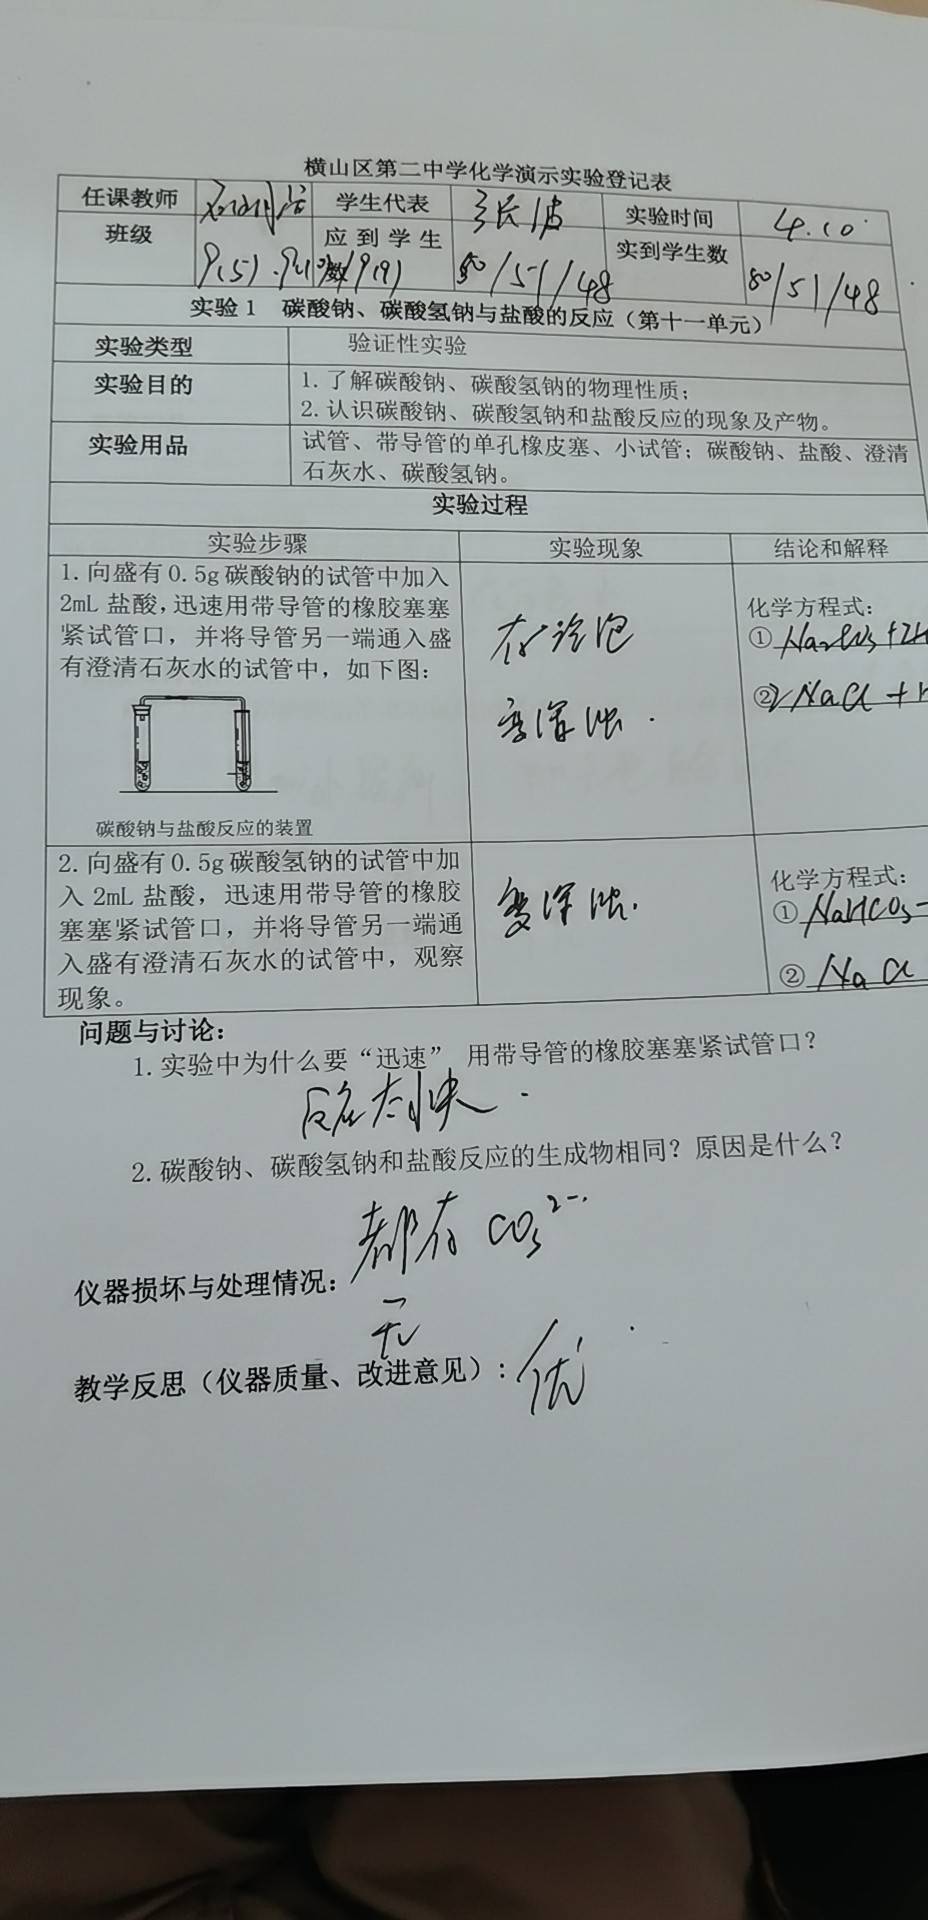 横山区第二中学化学演示实验登记表
任课教师 学生代表 张波 实验时间 4.10
班级 9(5). 应到学生数 50/51/48 实到学生数 50/51/48
实验1 碳酸钠、碳酸氢钠与盐酸的反应（第十一单元）
实验类型 验证性实验
实验目的 1.了解碳酸钠、碳酸氢钠的物理性质；
2.认识碳酸钠、碳酸氢钠和盐酸反应的现象及产物。
实验用品 试管、带导管的单孔橡皮塞、小试管；碳酸钠、盐酸、澄清
石灰水、碳酸氢钠。
实验过程
实验步骤 实验现象 结论和解释
1.向盛有0.5g碳酸钠的试管中加入
2mL盐酸，迅速用带导管的橡胶塞塞
紧试管口，并将导管另一端通入盛
有澄清石灰水的试管中，如下图：
碳酸钠与盐酸反应的装置
有气泡
变浑浊.
化学方程式：
①Na2CO3+2H
②2NaCl+H
2.向盛有0.5g碳酸氢钠的试管中加
入2mL盐酸，迅速用带导管的橡胶
塞塞紧试管口，并将导管另一端通
入盛有澄清石灰水的试管中，观察
现象。
变浑浊.
化学方程式：
①NaHCO3-
②NaCl
问题与讨论：
1.实验中为什么要“迅速”用带导管的橡胶塞塞紧试管口？
反应太快.
2.碳酸钠、碳酸氢钠和盐酸反应的生成物相同？原因是什么？
都有CO3²⁻.
仪器损坏与处理情况：
无
教学反思（仪器质量、改进意见）：优